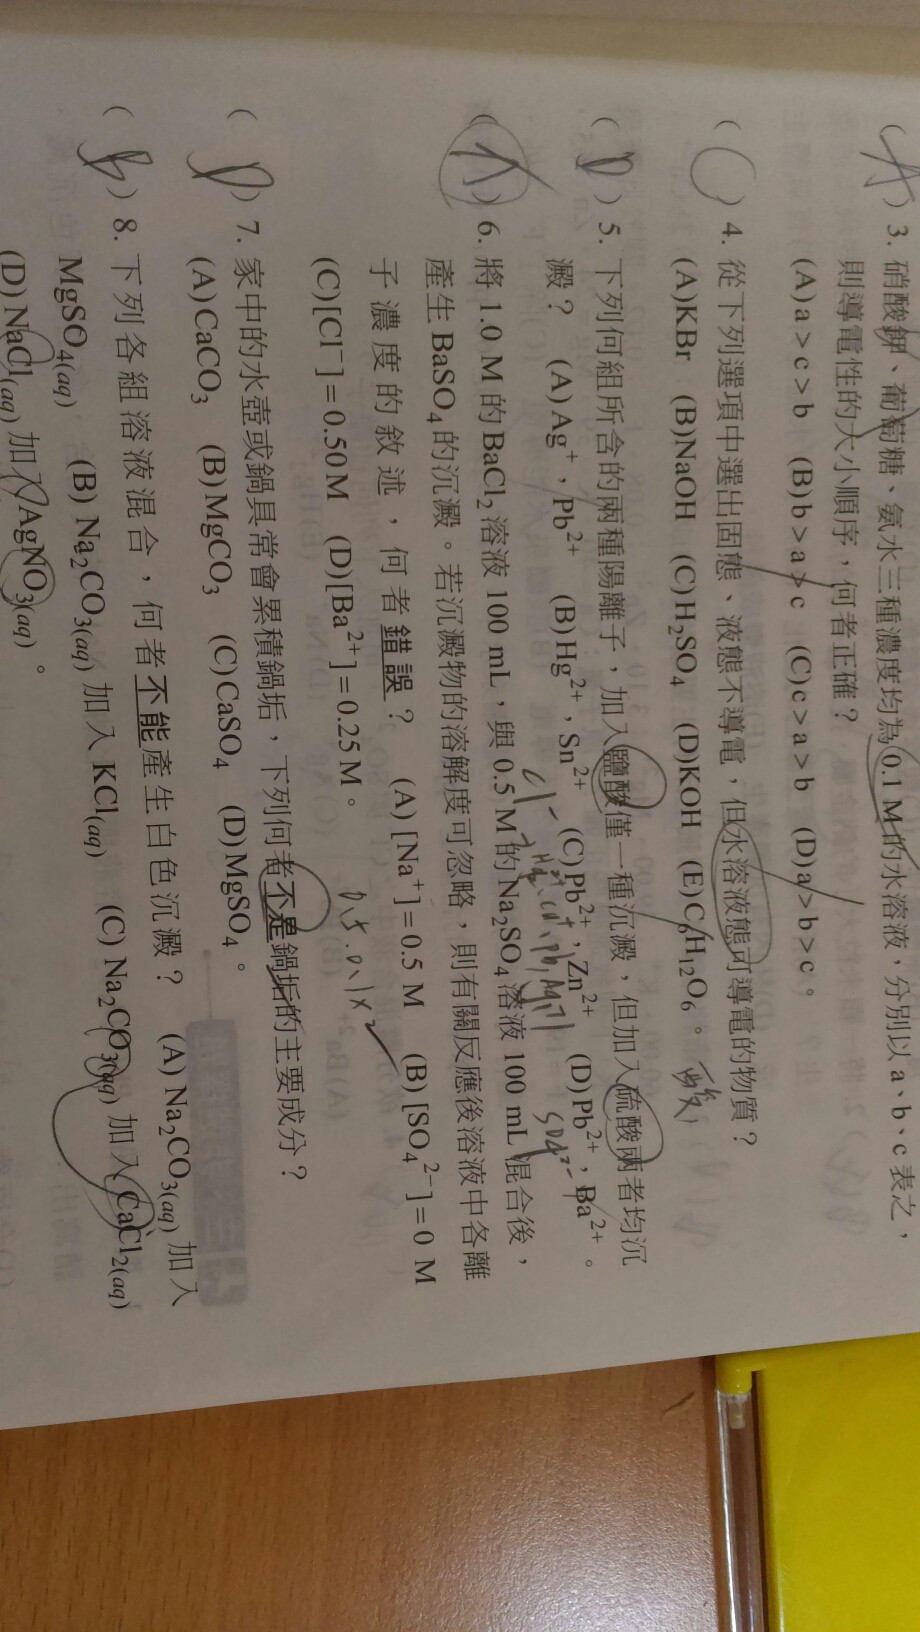 (A) 3. 硝酸鉀、葡萄糖、氨水三種濃度均為0.1 M的水溶液，分別以a、b、c表之，
則導電性的大小順序，何者正確？
(A)a＞c＞b (B)b＞a＞c (C)c＞a＞b (D)a＞b＞c。
(C) 4. 從下列選項中選出固態、液態不導電，但水溶液態可導電的物質？
(A)KBr (B)NaOH (C)H₂SO₄ (D)KOH (E)C₆H₁₂O₆。 酸
(D) 5. 下列何組所含的兩種陽離子，加入鹽酸僅一種沉澱，但加入硫酸兩者均沉
澱？ (A)Ag⁺，Pb²⁺ (B)Hg²⁺，Sn²⁺ (C)Pb²⁺，Zn²⁺ (D)Pb²⁺，Ba²⁺。
Cl⁻
SO₄²⁻
(A) 6. 將 1.0 M 的BaCl₂溶液 100 mL，與 0.5 M的Na₂SO₄溶液 100 mL混合後，
產生BaSO₄的沉澱。若沉澱物的溶解度可忽略，則有關反應後溶液中各離
子濃度的敘述，何者錯誤？ (A) [Na⁺]＝0.5 M (B) [SO₄²⁻]＝0 M
(C)[Cl⁻]＝0.50 M (D)[Ba²⁺]＝0.25 M。
(D) 7. 家中的水壺或鍋具常會累積鍋垢，下列何者不是鍋垢的主要成分？
(A)CaCO₃ (B)MgCO₃ (C)CaSO₄ (D)MgSO₄。
(b) 8. 下列各組溶液混合，何者不能產生白色沉澱？ (A) Na₂CO₃(aq)加入
MgSO₄(aq) (B) Na₂CO₃(aq)加入KCl(aq) (C) Na₂CO₃(aq)加入CaCl₂(aq)
(D) NaCl(aq)加入AgNO₃(aq)。